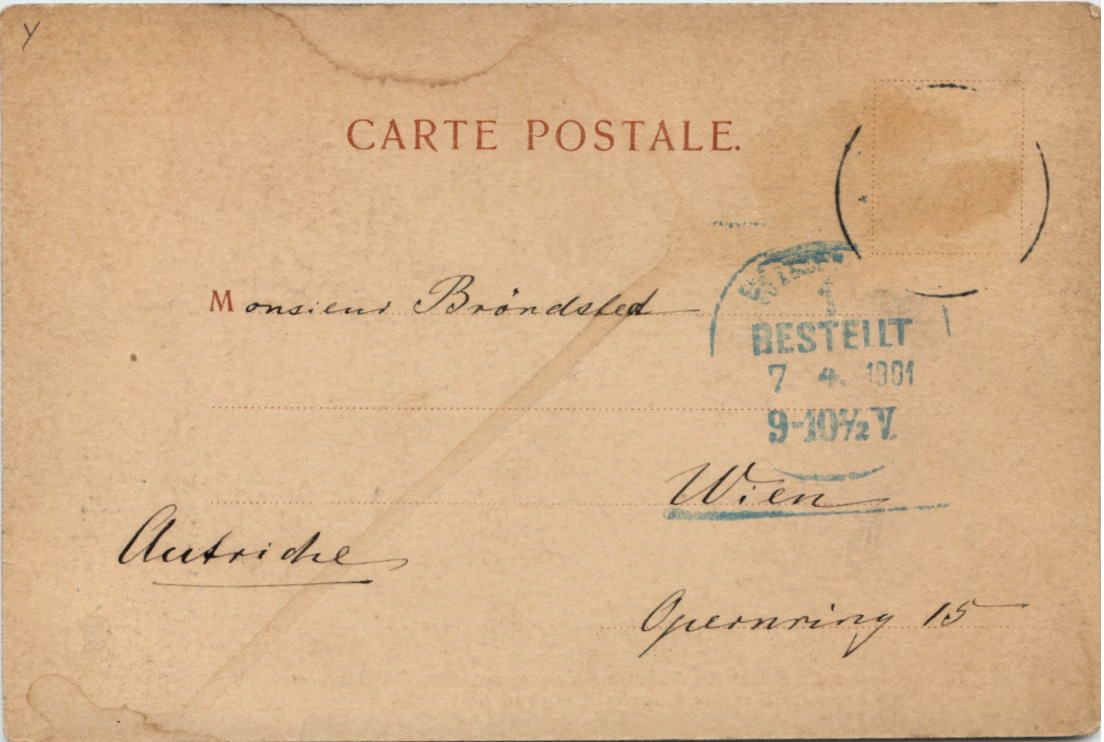 Y
CARTE POSTALE.
Monsieur Bröndsted
1
BESTELLT
7 4. 1901
9-10½ V.
Wien
Autriche
Opernring 15